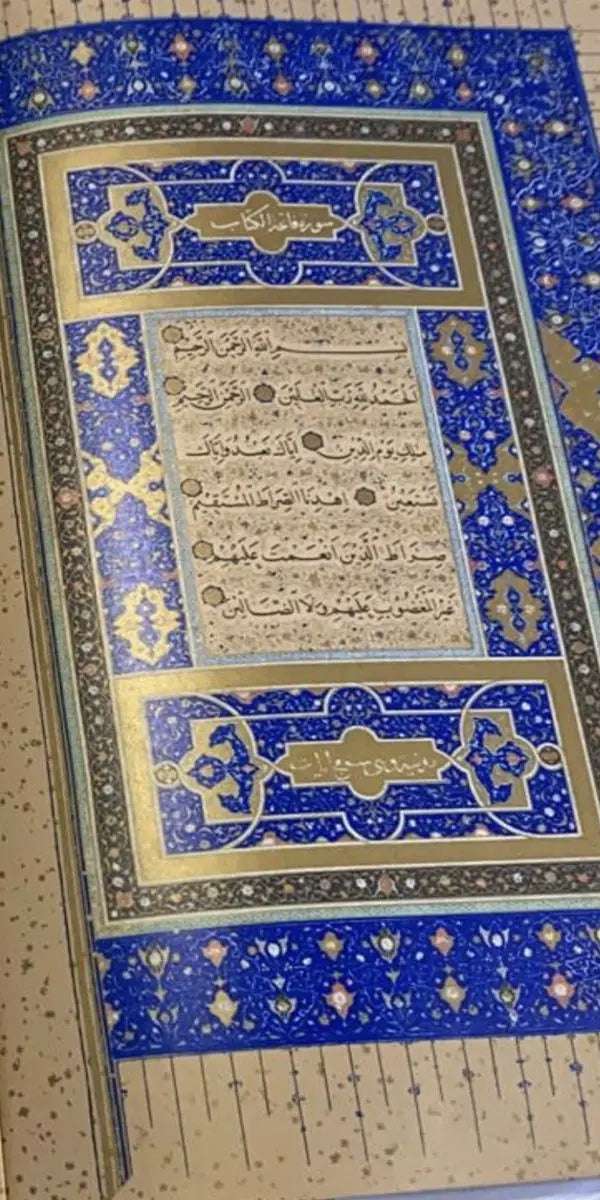 سورة فاتحة الكتاب
بسم الله الرحمن الرحيم
الحمد لله رب العلمين الرحمن الرحيم
ملك يوم الدين اياك نعبد واياك
نستعين اهدنا الصراط المستقيم
صراط الذين انعمت عليهم
غير المغضوب عليهم ولا الضالين
وهي سبع ايات